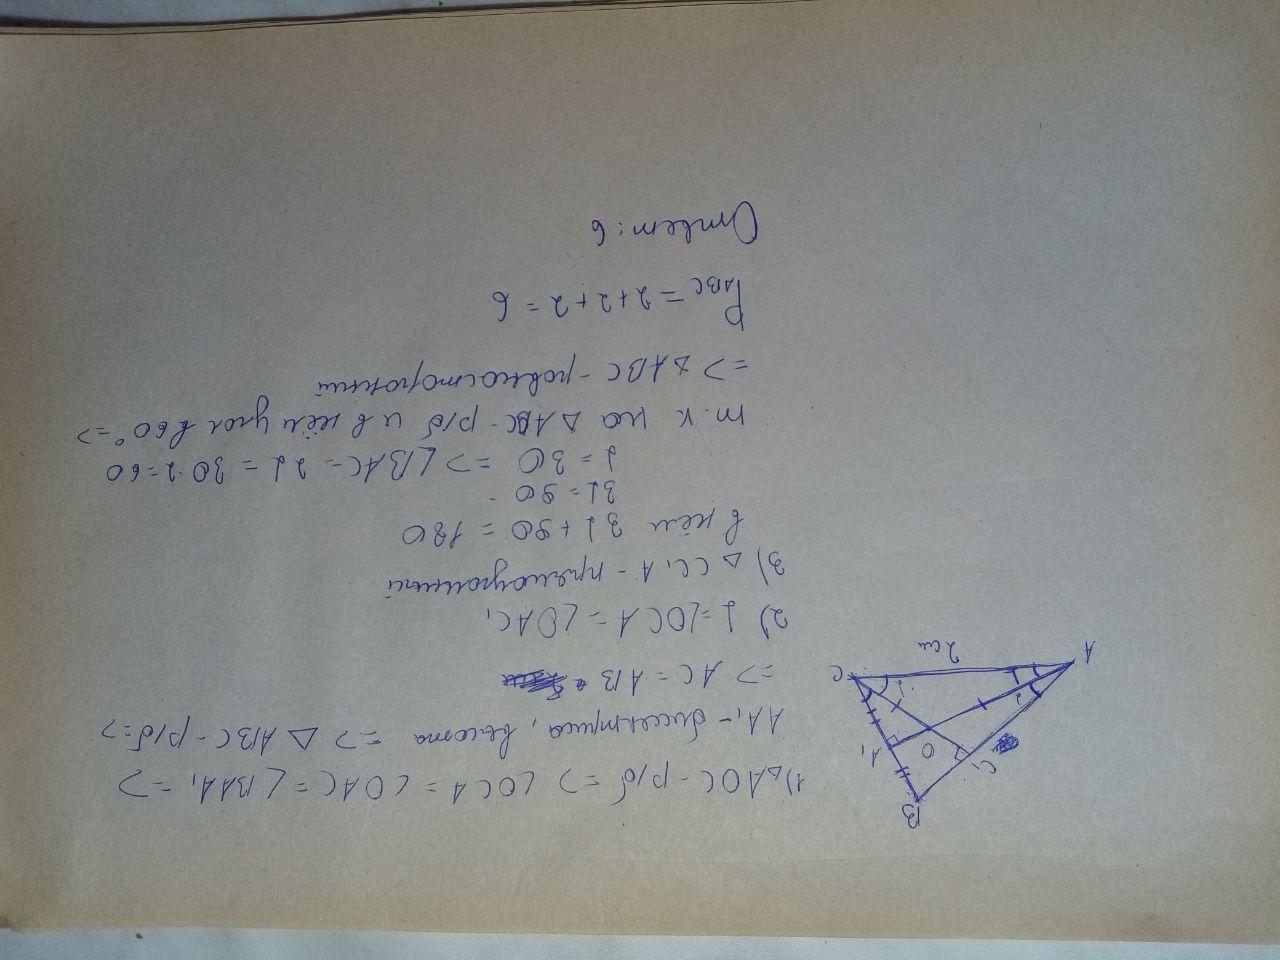 1) △AOC - р/б => ∠OCA = ∠OAC = ∠BAA₁ =>
AA₁ - биссектриса, высота => △ABC - р/б =>
=> AC = AB
2) ∠ = ∠OCA = ∠OAC₁
3) △CC₁A - прямоугольный
в нём 3∠ + 90 = 180
3∠ = 90
∠ = 30 => ∠BAC = 2∠ = 30·2 = 60
т.к на △ABC - р/б и в нём угол в 60° =>
=> △ABC - равносторонний
P ABC = 2+2+2 = 6
Ответ: 6
B
A₁
C₁
O
C
A
2 см